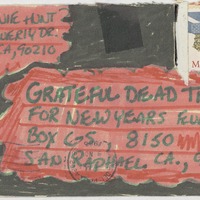 NIE HUNT
VERLY DR.
CA, 90210
GRATEFUL DEAD T
FOR NEW YEARS
BOX CS, 8150
SAN RAPHAEL, CA., 9
M